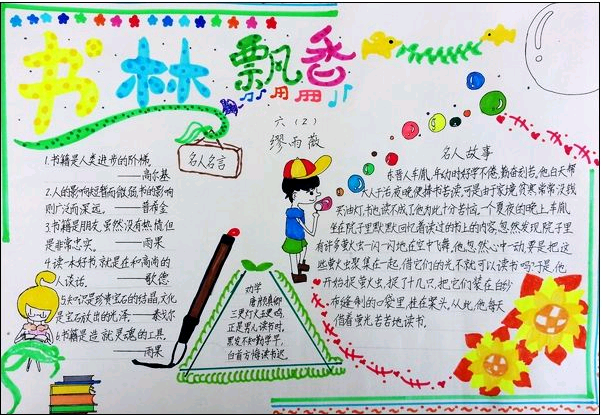 书林飘香
六（2）
缪雨薇
名人名言
1.书籍是人类进步的阶梯。
——高尔基
2.人的影响短暂而微弱,书的影响
则广泛而深远。——普希金
3.书籍是朋友,虽然没有热情,但
是非常忠实。——雨果
4.读一本好书,就是在和高尚的
人谈话。——歌德
5.知识是珍贵宝石的结晶,文化
是宝石放出的光泽。——泰戈尔
6.书籍是造就灵魂的工具。
——雨果
劝学
唐 颜真卿
三更灯火五更鸡,
正是男儿读书时。
黑发不知勤学早,
白首方悔读书迟。
名人故事
东晋人车胤,年幼时好学不倦,勤奋刻苦。他白天帮
大人干活,夜晚便捧书苦读,可是由于家境贫寒,常常没钱
买油灯,书也读不成了,他为此十分苦恼。一个夏夜的晚上,车胤
坐在院子里默默回忆着读过的书上的内容,忽然发现院子里
有许多萤火虫一闪一闪地在空中飞舞,他忽然心中一动,要是把这
些萤火虫聚集在一起,借它们的光不就可以读书吗?于是,他
开始捉萤火虫,捉了十几只,把它们装在白纱
布缝制的口袋里,挂在案头。从此,他每天
借着萤光苦苦地读书。